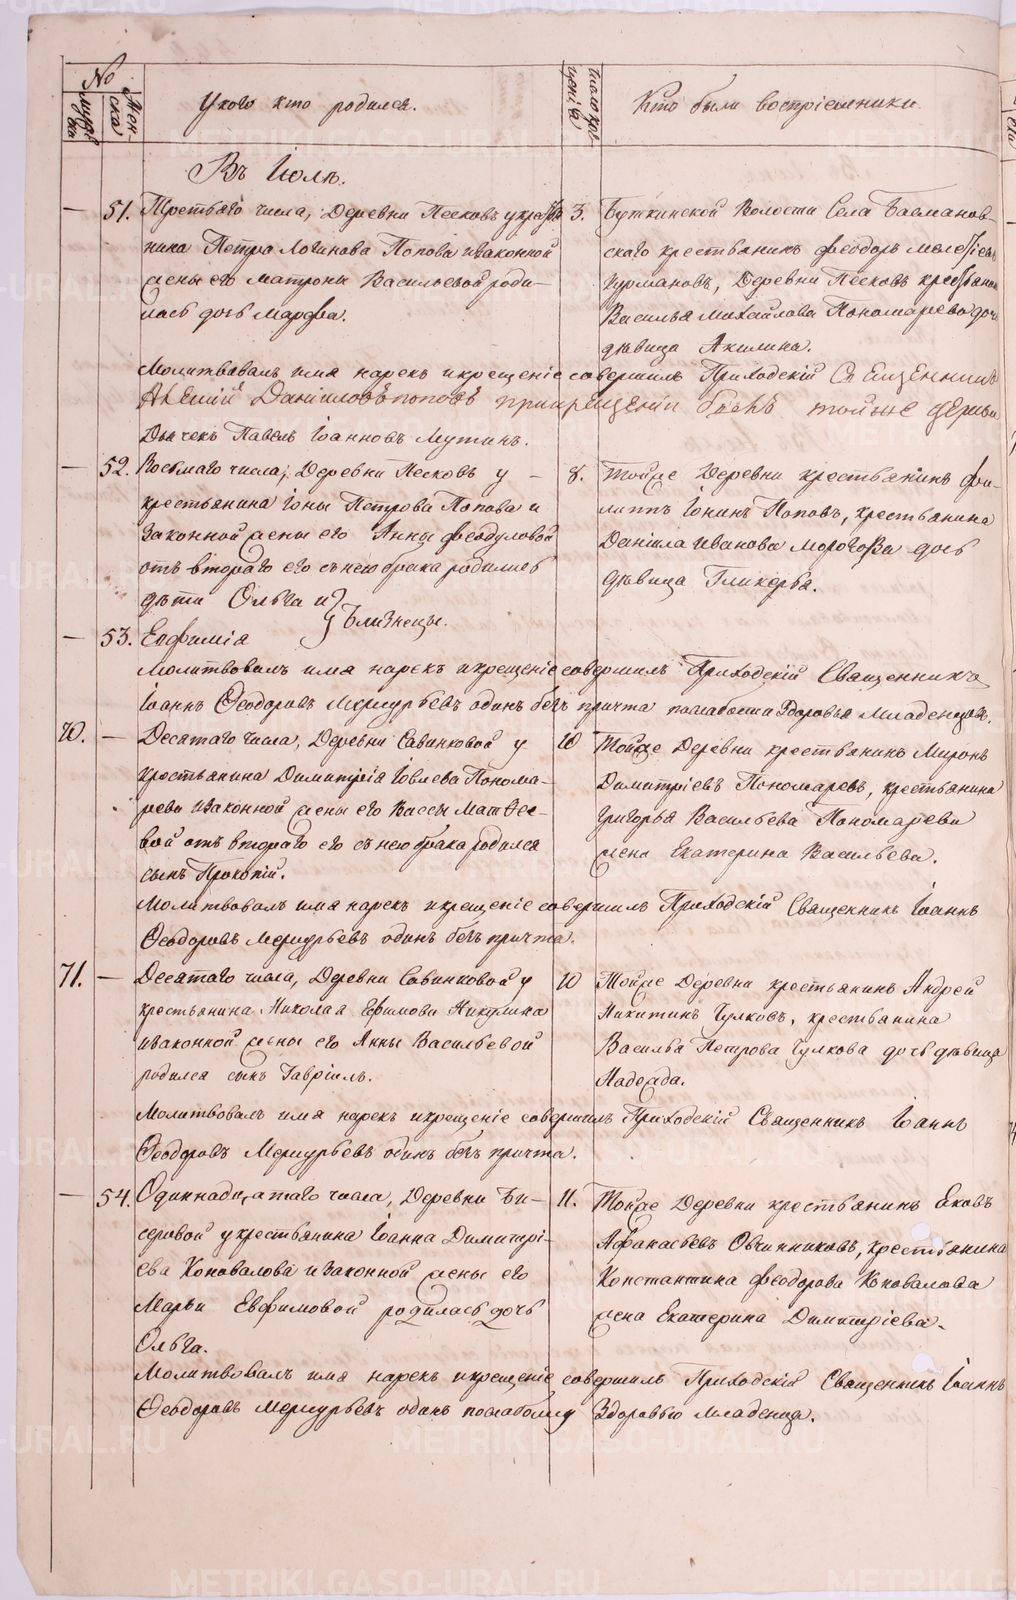 №
Мужеска
Женска
У кого кто родился.
Число крещенія
Кто были воспріемники
Въ Іюлѣ.
51. Третьяго числа, Деревни Песковъ у кресть
янина Петра Логинова Попова и законной
жены его Матроны Васильевой роди-
лась дочь Марѳа.
3. Буткинской Волости Села Басманов-
скаго крестьянинъ Феодоръ
Деревни Песковъ крестьянина
Василья Михайлова Пономарева дочь
дѣвица Акилина.
Молитвовалъ имя нарекъ и крещеніе совершилъ Приходскій Священникъ
Даниловъ Поповъ при крещеніи былъ тойже церкви
Дьячекъ Павелъ Іоанновъ Мутинъ.
52. Восьмаго числа, Деревни Песковъ у
крестьянина Іоны Петрова Попова и
Законной жены его Анны Феодуловой
отъ втораго его съ нею брака родились
дѣти Ольга и
Близнецы.
53. Евфимія
8. Тойже Деревни крестьянинъ Фи-
липпъ Іонинъ Поповъ, крестьянина
Даніила Иванова Морогова дочь
дѣвица Гликерья.
Молитвовалъ имя нарекъ и крещеніе совершилъ Приходскій Священникъ
Іоаннъ Ѳеодоровъ Меркурьевъ одинъ безъ причта по слабости Здоровья Младенцовъ.
70. Десятаго числа, Деревни Савинковой у
крестьянина Димитрія Іовлева Понома-
рева и законной жены его Вассы Матѳее-
вой отъ втораго его съ нею брака родился
сынъ Прокопій.
10 Тойже Деревни крестьянинъ Миронъ
Димитріевъ Пономаревъ, крестьянина
Григорья Васильева Пономарева
жена Екатерина Васильева.
Молитвовалъ имя нарекъ и крещеніе совершилъ Приходскій Священникъ Іоаннъ
Ѳеодоровъ Меркурьевъ одинъ безъ причта.
71. Десятаго числа, Деревни Савинковой у
крестьянина Николая Ефимова Никулина
и законной жены его Анны Васильевой
родился сынъ Гавріилъ.
10 Тойже Деревни крестьянинъ Андрей
Никитинъ Чулковъ, крестьянина
Василья Петрова Чулкова дочь дѣвица
Надежда.
Молитвовалъ имя нарекъ и крещеніе совершилъ Приходскій Священникъ Іоаннъ
Ѳеодоровъ Меркурьевъ одинъ безъ причта.
54. Одиннадцатаго числа, Деревни Би-
серовой у крестьянина Іоанна Димитрі-
ева Коновалова и Законной жены его
Марьи Евфимовой родилась дочь
Ольга.
11. Тойже Деревни крестьянинъ Яковъ
Афанасьевъ Овчинниковъ, крестьянина
Константина Феодорова Коновалова
жена Екатерина Димитріева.
Молитвовалъ имя нарекъ и крещеніе совершилъ Приходскій Священникъ Іоаннъ
Ѳеодоровъ Меркурьевъ одинъ по слабому Здоровью младенца.
METRIKI.GASO-URAL.RU